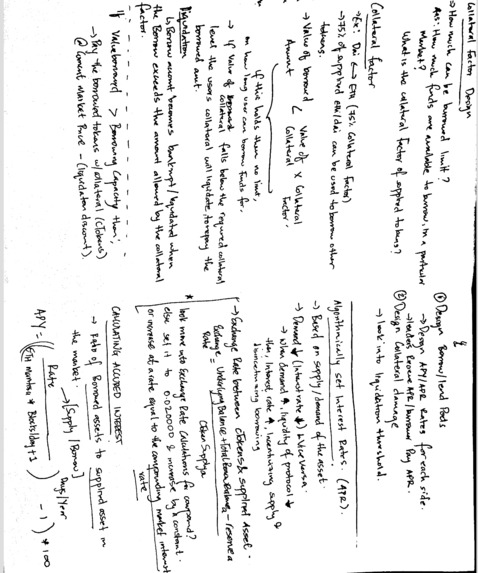 Collateral Factor Design
→ How much can be borrowed limit?
Ans: How much funds are available to borrow, in a particular
Market?
What is the collateral factor of supplied tokens?
Collateral factor
→ Ex: Dai ↔ ETH (75% Collateral Factor)
→ 75% of supplied eth/dai can be used to borrow other
tokens.
→ Value of borrowed < Value of × Collateral
Amount Collateral Factor.
if this holds then no limit,
on how long user can borrow funds for.
→ If value of collateral falls below the required collateral
level the users collateral will liquidate, to repay the
borrowed amt.
Liquidation
↳ Borrow account becomes bankrupt/liquidated when
the Borrow exceeds the amount allowed by the collateral
factor.
If Value borrowed > Borrowing Capacity then;
→ Pay the borrowed tokens w/collateral (cTokens)
@ Current Market Price - (liquidation discount).
&
① Design Borrow/lend Pools
→ Design APY/APR Rates for each side.
→ lenders Receive APR/borrowers Pay APR.
② Design Collateral damage
→ look into liquidation threshold
Algorithmically set Interest Rates. (APR).
→ Based on supply/demand of the asset.
→ Demand ↓ (Interest rate ↓) & vice versa.
→ When demand ↑, liquidity of protocol ↓
then, interest rate ↑, incentivizing supply &
disincentivizing borrowing
→ Exchange Rate between cTokens & supplied Asset.
Exchange Rate = Underlying Balance + Total Borrow Balance a - reserve a
cToken Supply a
*
look more into Exchange Rate Calculations for compound?
else set it to 0.020000 & increase by constant.
or increase at a rate equal to the compounding market interest
rate
CALCULATING ACCRUED INTEREST
→ Ratio of Borrowed assets to supplied asset in
the market. → [Supply/Borrow]
APY = ((Rate / (ETH mantissa * Blocks/day + 1)) Days/Year - 1) * 100